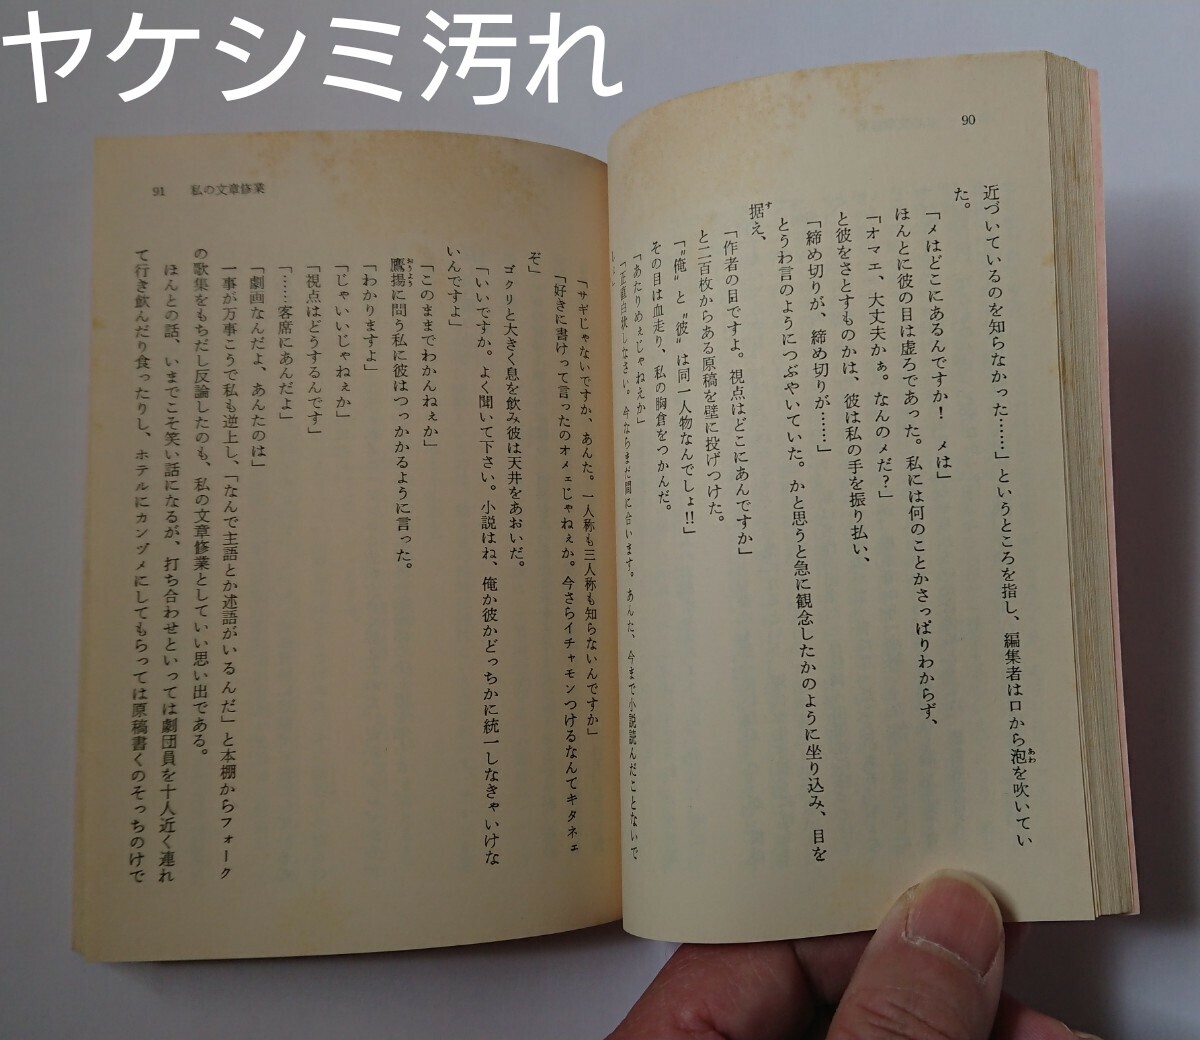 ヤケシミ汚れ
90
近づいているのを知らなかった……」というところを指し、編集者は口から泡を吹いてい
た。
「〆はどこにあるんですか！　〆は」
ほんとに彼の目は虚ろであった。私には何のことかさっぱりわからず、
「オマエ、大丈夫かぁ。なんの〆だ？」
と彼をさとすものかは、彼は私の手を振り払い、
「締め切りが、締め切りが……」
とうわ言のようにつぶやいていた。かと思うと急に観念したかのように坐り込み、目を
据え、
「作者の目ですよ。視点はどこにあんですか」
と二百枚からある原稿を壁に投げつけた。
「〝俺〟と〝彼〟は同一人物なんでしょ!!」
その目は血走り、私の胸倉をつかんだ。
「あたりめぇじゃねえか」
「正直白状しなさい。今ならまだ間に合います。あんた、今まで小説読んだことないで
91　私の文章修業
「サギじゃないですか、あんた。一人称も三人称も知らないんですか」
「好きに書けって言ったのオメェじゃねぇか。今さらイチャモンつけるなんてキタネェ
ぞ」
ゴクリと大きく息を飲み彼は天井をあおいだ。
「いいですか。よく聞いて下さい。小説はね、俺か彼かどっちかに統一しなきゃいけな
いんですよ」
「このままでわかんねぇか」
鷹揚に問う私に彼はつっかかるように言った。
「わかりますよ」
「じゃいいじゃねぇか」
「視点はどうするんです」
「……客席にあんだよ」
「劇画なんだよ、あんたのは」
一事が万事こうで私も逆上し、「なんで主語とか述語がいるんだ」と本棚からフォーク
の歌集をもちだし反論したのも、私の文章修業としていい思い出である。
ほんとの話、いまでこそ笑い話になるが、打ち合わせといっては劇団員を十人近く連れ
て行き飲んだり食ったりし、ホテルにカンヅメにしてもらっては原稿書くのそっちのけで